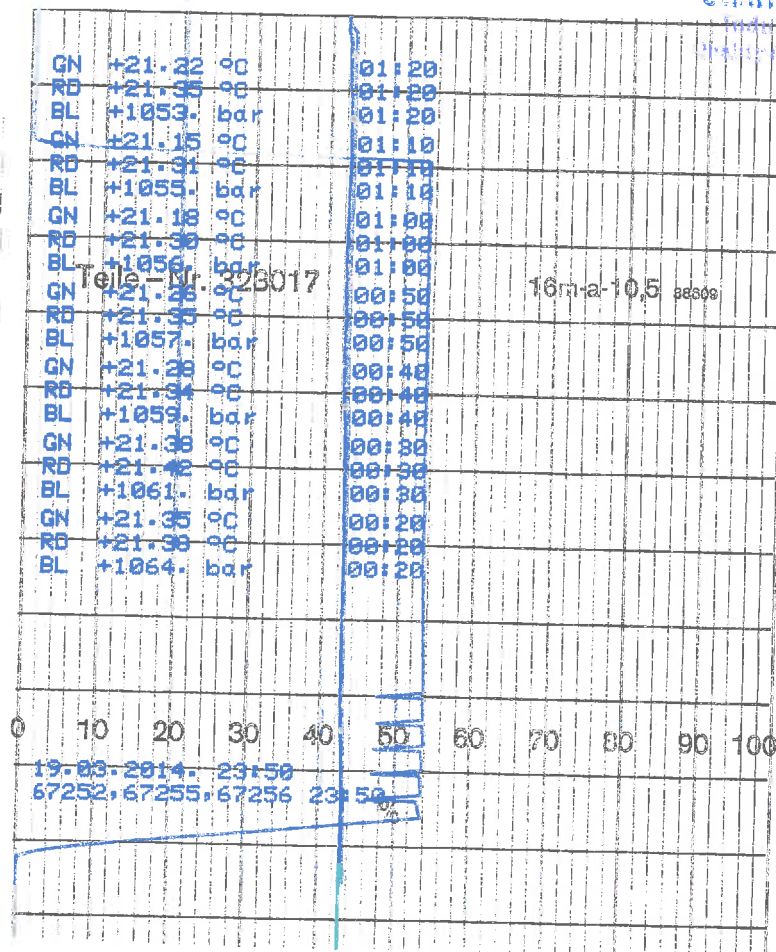 GN +21.22 °C 01:20
RD +21.35 °C 01:20
BL +1053. bar 01:20
GN +21.15 °C 01:10
RD +21.31 °C 01:10
BL +1055. bar 01:10
GN +21.18 °C 01:00
RD +21.30 °C 01:00
BL +1056. bar 01:00
Teile-Nr. 323017 16m-a-10,5
GN +21.26 °C 00:50
RD +21.35 °C 00:50
BL +1057. bar 00:50
GN +21.28 °C 00:40
RD +21.34 °C 00:40
BL +1059. bar 00:40
GN +21.38 °C 00:30
RD +21.42 °C 00:30
BL +1061. bar 00:30
GN +21.35 °C 00:20
RD +21.38 °C 00:20
BL +1064. bar 00:20
0 10 20 30 40 50 60 70 80 90 100
19.03.2014. 23:50
67252,67255,67256 23:50
%